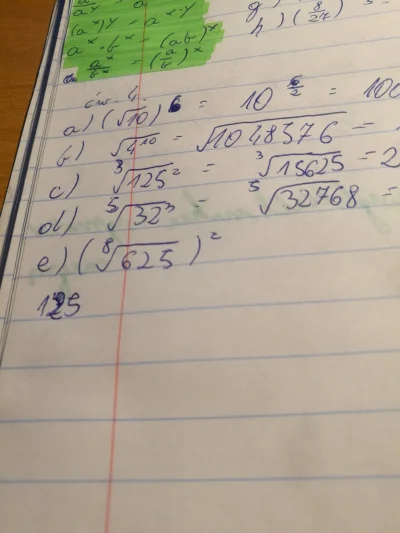 (aˣ)ʸ = aˣ·ʸ
aˣ · bˣ = (ab)ˣ
aˣ/bˣ = (a/b)ˣ
h) (8/27)
ćw. 4.
a) (√10)⁶ = 10^(6/2) = 100
b) √4¹⁰ = √1048576 =
c) ³√125² = ³√15625 = 2
d) ⁵√32³ = ⁵√32768 =
e) (⁸√625)²
125